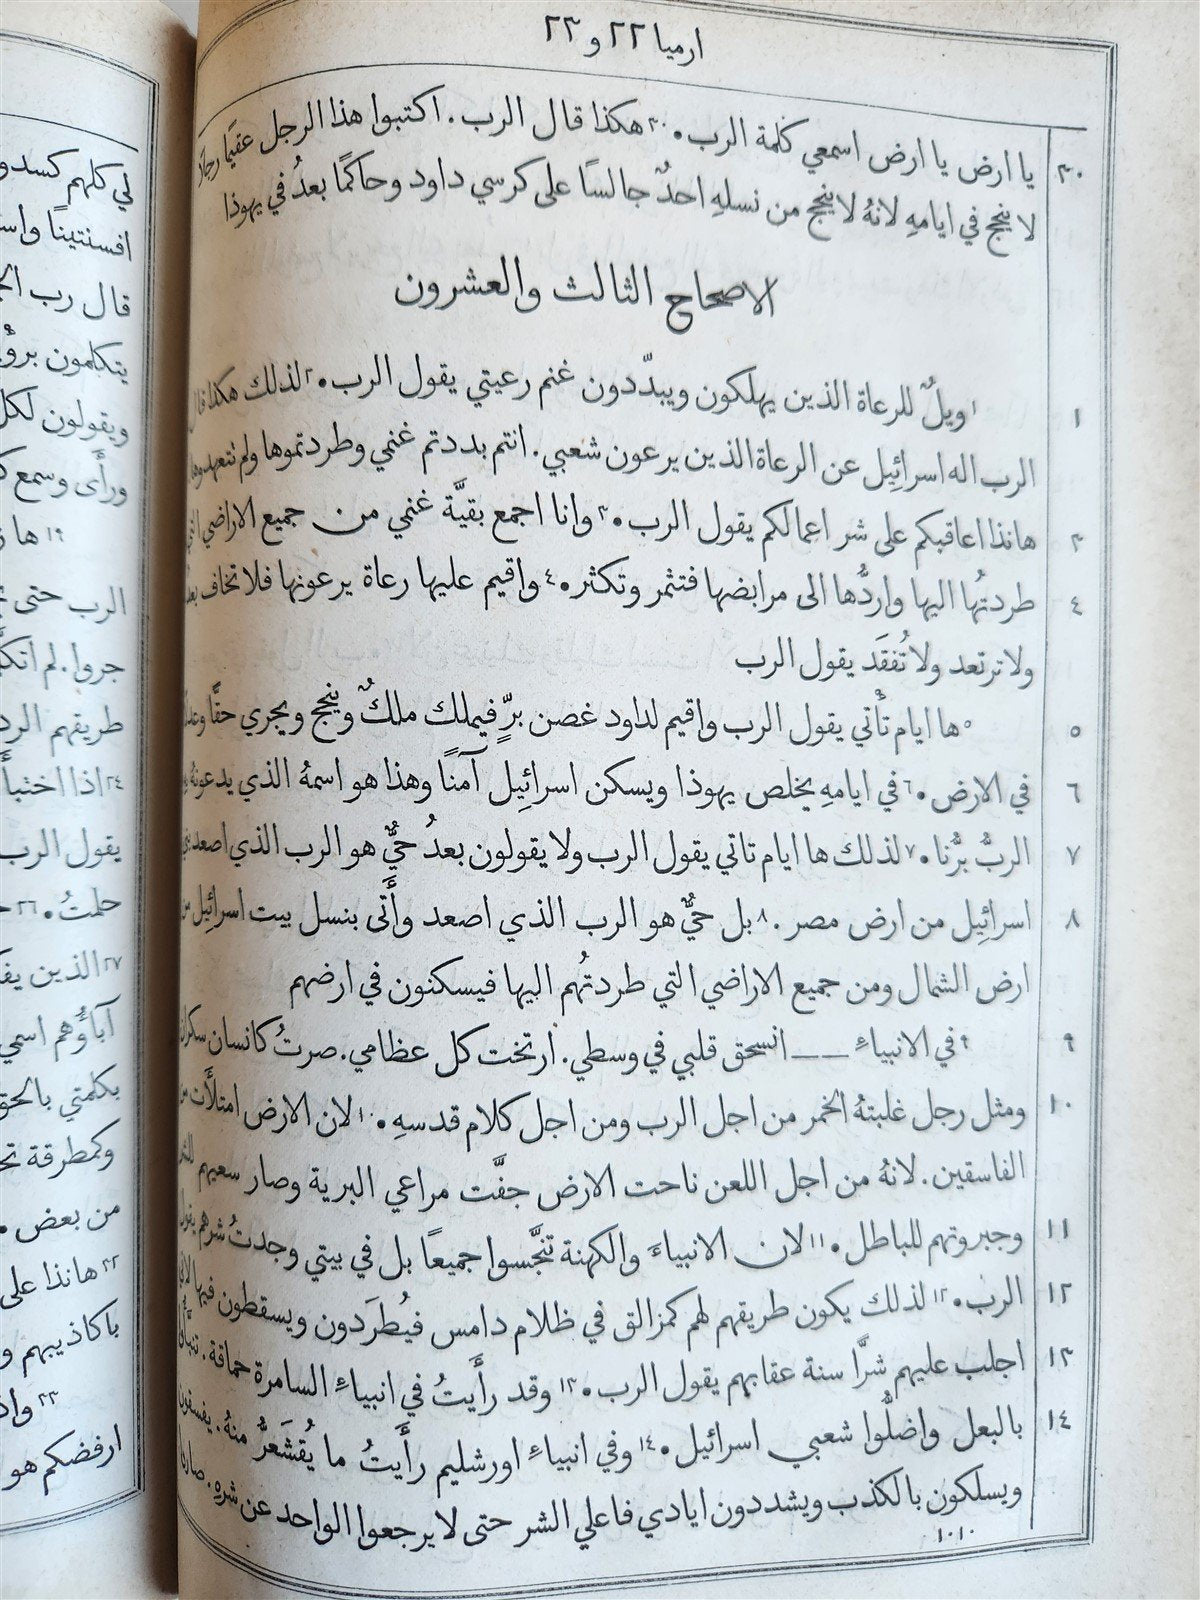 ارميا ٢٢ و ٢٣
٣٠ يا ارض يا ارض اسمعي كلمة الرب. ٣٠هكذا قال الرب. اكتبوا هذا الرجل عقيمًا رجلاً
لا ينجح في ايامهِ لانهُ لا ينجح من نسلهِ احدٌ جالسًا على كرسي داود وحاكمًا بعدُ في يهوذا
الاصحاح الثالث والعشرون
١ ١ويلٌ للرعاة الذين يهلكون ويبدّدون غنم رعيتي يقول الرب. ٢لذلك هكذا قال
الرب اله اسرائيل عن الرعاة الذين يرعون شعبي. انتم بددتم غنمي وطردتموها ولم تتعهدوها
٣ هانذا اعاقبكم على شر اعمالكم يقول الرب. ٣وانا اجمع بقيَّة غنمي من جميع الاراضي التي
٤ طردتُها اليها واردُّها الى مرابضها فتثمر وتكثر. ٤واقيم عليها رعاة يرعونها فلا تخاف بعد
ولا ترتعد ولا تُفقَد يقول الرب
٥ ٥ها ايام تأْتي يقول الرب واقيم لداود غصن برٍّ فيملك ملكٌ وينجح ويجري حقًّا وعدلاً
٦ في الارض. ٦في ايامهِ يخلص يهوذا ويسكن اسرائيل آمنًا وهذا هو اسمهُ الذي يدعونهُ بهِ
٧ الربُّ برُّنا. ٧لذلك ها ايام تاتي يقول الرب ولا يقولون بعدُ حيٌّ هو الرب الذي اصعد بني
٨ اسرائيل من ارض مصر. ٨بل حيٌّ هو الرب الذي اصعد وأَتى بنسل بيت اسرائيل من
ارض الشمال ومن جميع الاراضي التي طردتُهم اليها فيسكنون في ارضهم
٩ ٩في الانبياءِ —— انسحق قلبي في وسطي. ارتخت كل عظامي. صرتُ كانسان سكران
١٠ ومثل رجل غلبتهُ الخمر من اجل الرب ومن اجل كلام قدسهِ. ١٠لان الارض امتلأَت من
الفاسقين. لانهُ من اجل اللعن ناحت الارض جفَّت مراعي البرية وصار سعيهم للشر
١١ وجبروتهم للباطل. ١١لان الانبياءَ والكهنة تنجَّسوا جميعًا بل في بيتي وجدتُ شرهم يقول
١٢ الرب. ١٢لذلك يكون طريقهم لهم كمزالق في ظلام دامس فيُطرَدون ويسقطون فيها لاني
١٣ اجلب عليهم شرًّا سنة عقابهم يقول الرب. ١٣وقد رأَيتُ في انبياءِ السامرة حماقة. تنبأُوا
١٤ بالبعل واضلُّوا شعبي اسرائيل. ١٤وفي انبياءِ اورشليم رأَيتُ ما يُقشَعرُّ منهُ. يفسقون
ويسلكون بالكذب ويشددون ايادي فاعلي الشر حتى لا يرجعوا الواحد عن شرهِ. صاروا
١٠١٠
لي كلهم كسدو
افسنتينًا واس
قال رب
يتكلمون برؤ
ويقولون لكل
ورأَى وسمع
١٩ ها
الرب حتى
جروا. لم اتك
طريقهم الرد
٢٤اذا اختبأَ
يقول الرب
حلمتُ. ٢٦
٢٧الذين يف
آباؤُهم اسمي
بكلمتي بالحق
وكمطرقة تح
من بعض.
٣٢هانذا على
باكاذيبهم و
٣٣واذ
ارفضكم هو